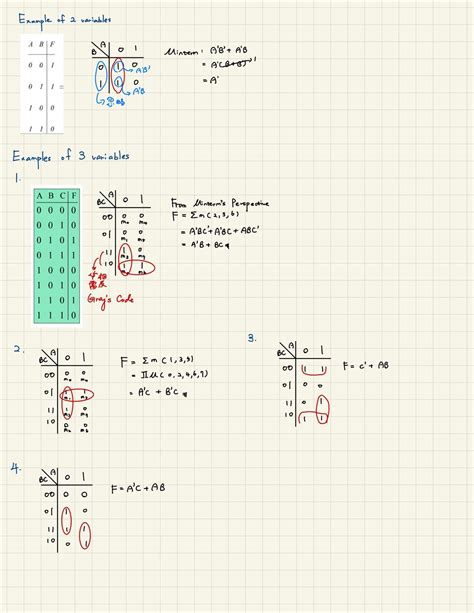 Example of 2 variables
A B F
0 0 1
0 1 1 =
1 0 0
1 1 0
A
B 0 1
0 1 0
1 1 0
A'B'
A'B
Minterm: A'B' + A'B
= A'(B+B') 1
= A'
Examples of 3 variables
1.
A B C F
0 0 0 0
0 0 1 0
0 1 0 1
0 1 1 1
1 0 0 0
1 0 1 0
1 1 0 1
1 1 1 0
A
BC 0 1
00 0 0
01 0 0
11 1 0
10 1 1
Gray's Code
From Minterm's Perspective
F = Σm(2,3,6)
= A'BC' + A'BC + ABC'
= A'B + BC
2.
A
BC 0 1
00 0 0
01 1 1
11 1 0
10 0 0
F = Σm(1,3,5)
= ΠM(0,2,4,6,7)
= A'C + B'C
3.
A
BC 0 1
00 1 1
01 0 0
11 0 1
10 1 1
F = C' + AB
4.
A
BC 0 1
00 0 0
01 1 0
11 1 1
10 0 1
F = A'C + AB